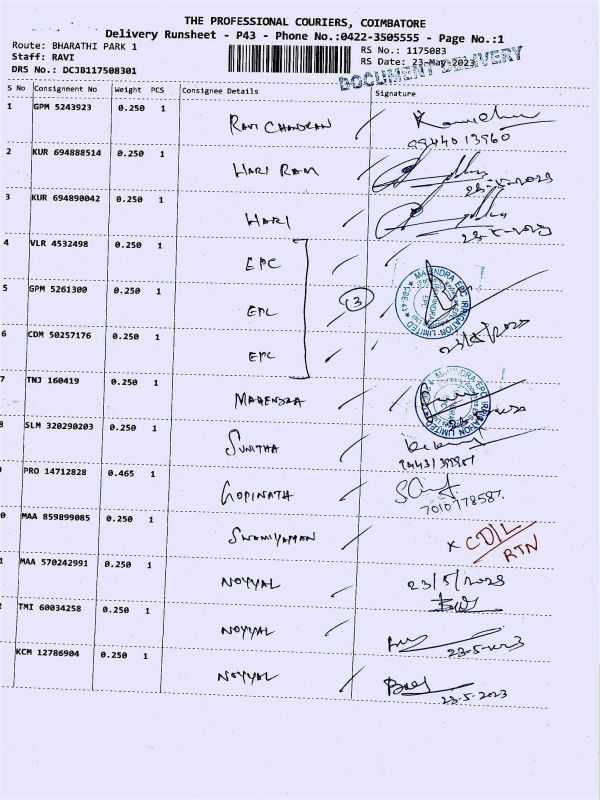 THE PROFESSIONAL COURIERS, COIMBATORE
Delivery Runsheet - P43 - Phone No.:0422-3505555 - Page No.:1
Route: BHARATHI PARK 1
RS No.: 1175083
Staff: RAVI
RS Date: 23-May-2023
DRS No.: DCJB117508301
DOCUMENT DELIVERY
S No Consignment No Weight PCS Consignee Details Signature
1 GPM 5243923 0.250 1 RAVI CHANDRAN
9944013960
2 KUR 694888514 0.250 1 HARI RAM
3 KUR 694890042 0.250 1 HARI
4 VLR 4532498 0.250 1 EPC
5 GPM 5261300 0.250 1 EPC 3
MAHINDRA EPC IRRIGATION LIMITED
6 CDM 50257176 0.250 1 EPC
7 TNJ 160419 0.250 1 MAHENDRA
8 SLM 320290203 0.250 1 SUNITHA
PRO 14712828 0.465 1 GOPINATH
7010778587
0 MAA 859899085 0.250 1 SWAMIYAPPAN x CD/L
RTN
1 MAA 570242991 0.250 1 NOYYAL 23/5/2023
TMI 60034258 0.250 1 NOYYAL
23-5-2023
KCM 12786904 0.250 1 NOYYAL
23-5-2023